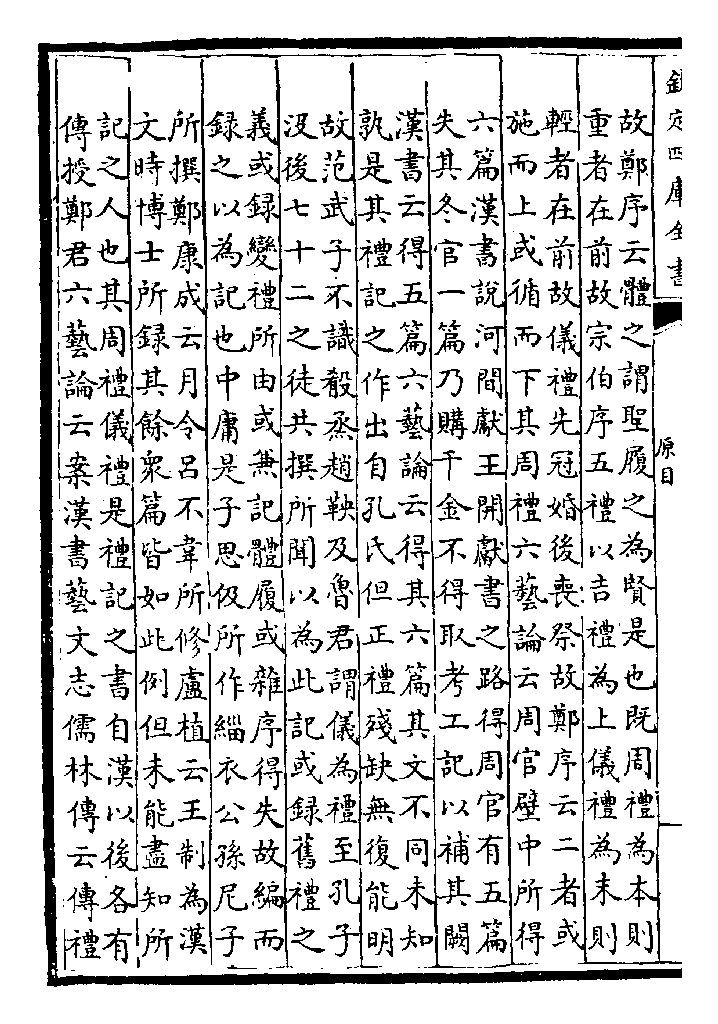 欽定四庫全書
原目
故鄭序云體之謂聖履之為賢是也既周禮為本則
重者在前故宗伯序五禮以吉禮為上儀禮為末則
輕者在前故儀禮先冠婚後喪祭故鄭序云二者或
施而上或循而下其周禮六藝論云周官壁中所得
六篇漢書說河間獻王開獻書之路得周官有五篇
失其冬官一篇乃購千金不得取考工記以補其闕
漢書云得五篇六藝論云得其六篇其文不同未知
孰是其禮記之作出自孔氏但正禮殘缺無復能明
故范武子不識殽烝趙鞅及魯君謂儀為禮至孔子
沒後七十二之徒共撰所聞以為此記或録舊禮之
義或録變禮所由或兼記體履或雜序得失故編而
録之以為記也中庸是子思伋所作緇衣公孫尼子
所撰鄭康成云月令呂不韋所修盧植云王制為漢
文時博士所録其餘衆篇皆如此例但未能盡知所
記之人也其周禮儀禮是禮記之書自漢以後各有
傳授鄭君六藝論云案漢書藝文志儒林傳云傳禮